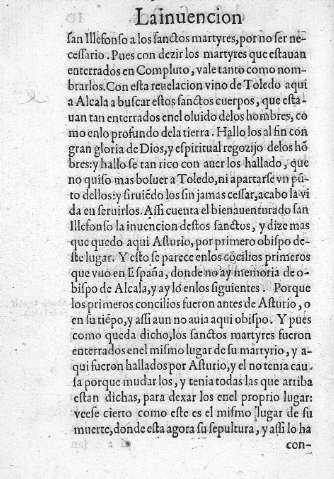 La inuencion
san Illefonso a los sanctos martyres, por no ser ne-
cessario. Pues con dezir los martyres que estauan
enterrados en Compluto, vale tanto como nom-
brarlos. Con esta reuelacion vino de Toledo aqui
a Alcala a buscar estos sanctos cuerpos, que esta-
uan tan enterrados en el oluido delos hombres, co
mo enlo profundo dela tierra. Hallo los al fin con
gran gloria de Dios, y espiritual regozijo delos hõ
bres: y hallo se tan rico con auer los hallado, que
no quiso mas boluer a Toledo, ni apartarse vn pũ-
to dellos: y siruiẽdo los sin jamas cessar, acabo la vi
da en seruirlos. Assi cuenta el bienauenturado san
Illefonso la inuencion destos sanctos, y dize mas
que quedo aqui Asturio, por primero obispo de-
ste lugar. Y esto se parece enlos cõcilios primeros
que vuo en España, donde no ay memoria de o-
bispo de Alcala, y ay lo enlos siguientes. Porque
los primeros concilios fueron antes de Asturio, o
en su tiẽpo, y assi aun no auia aqui obispo. Y pues
como queda dicho, los sanctos martyres fueron
enterrados enel mismo lugar de su martyrio, y a-
qui fueron hallados por Asturio, y el no tenia cau-
sa porque mudar los, y tenia todas las que arriba
estan dichas, para dexar los enel proprio lugar:
veese cierto como este es el mismo lugar de su
muerte, donde esta agora su sepultura, y assi lo ha
con-